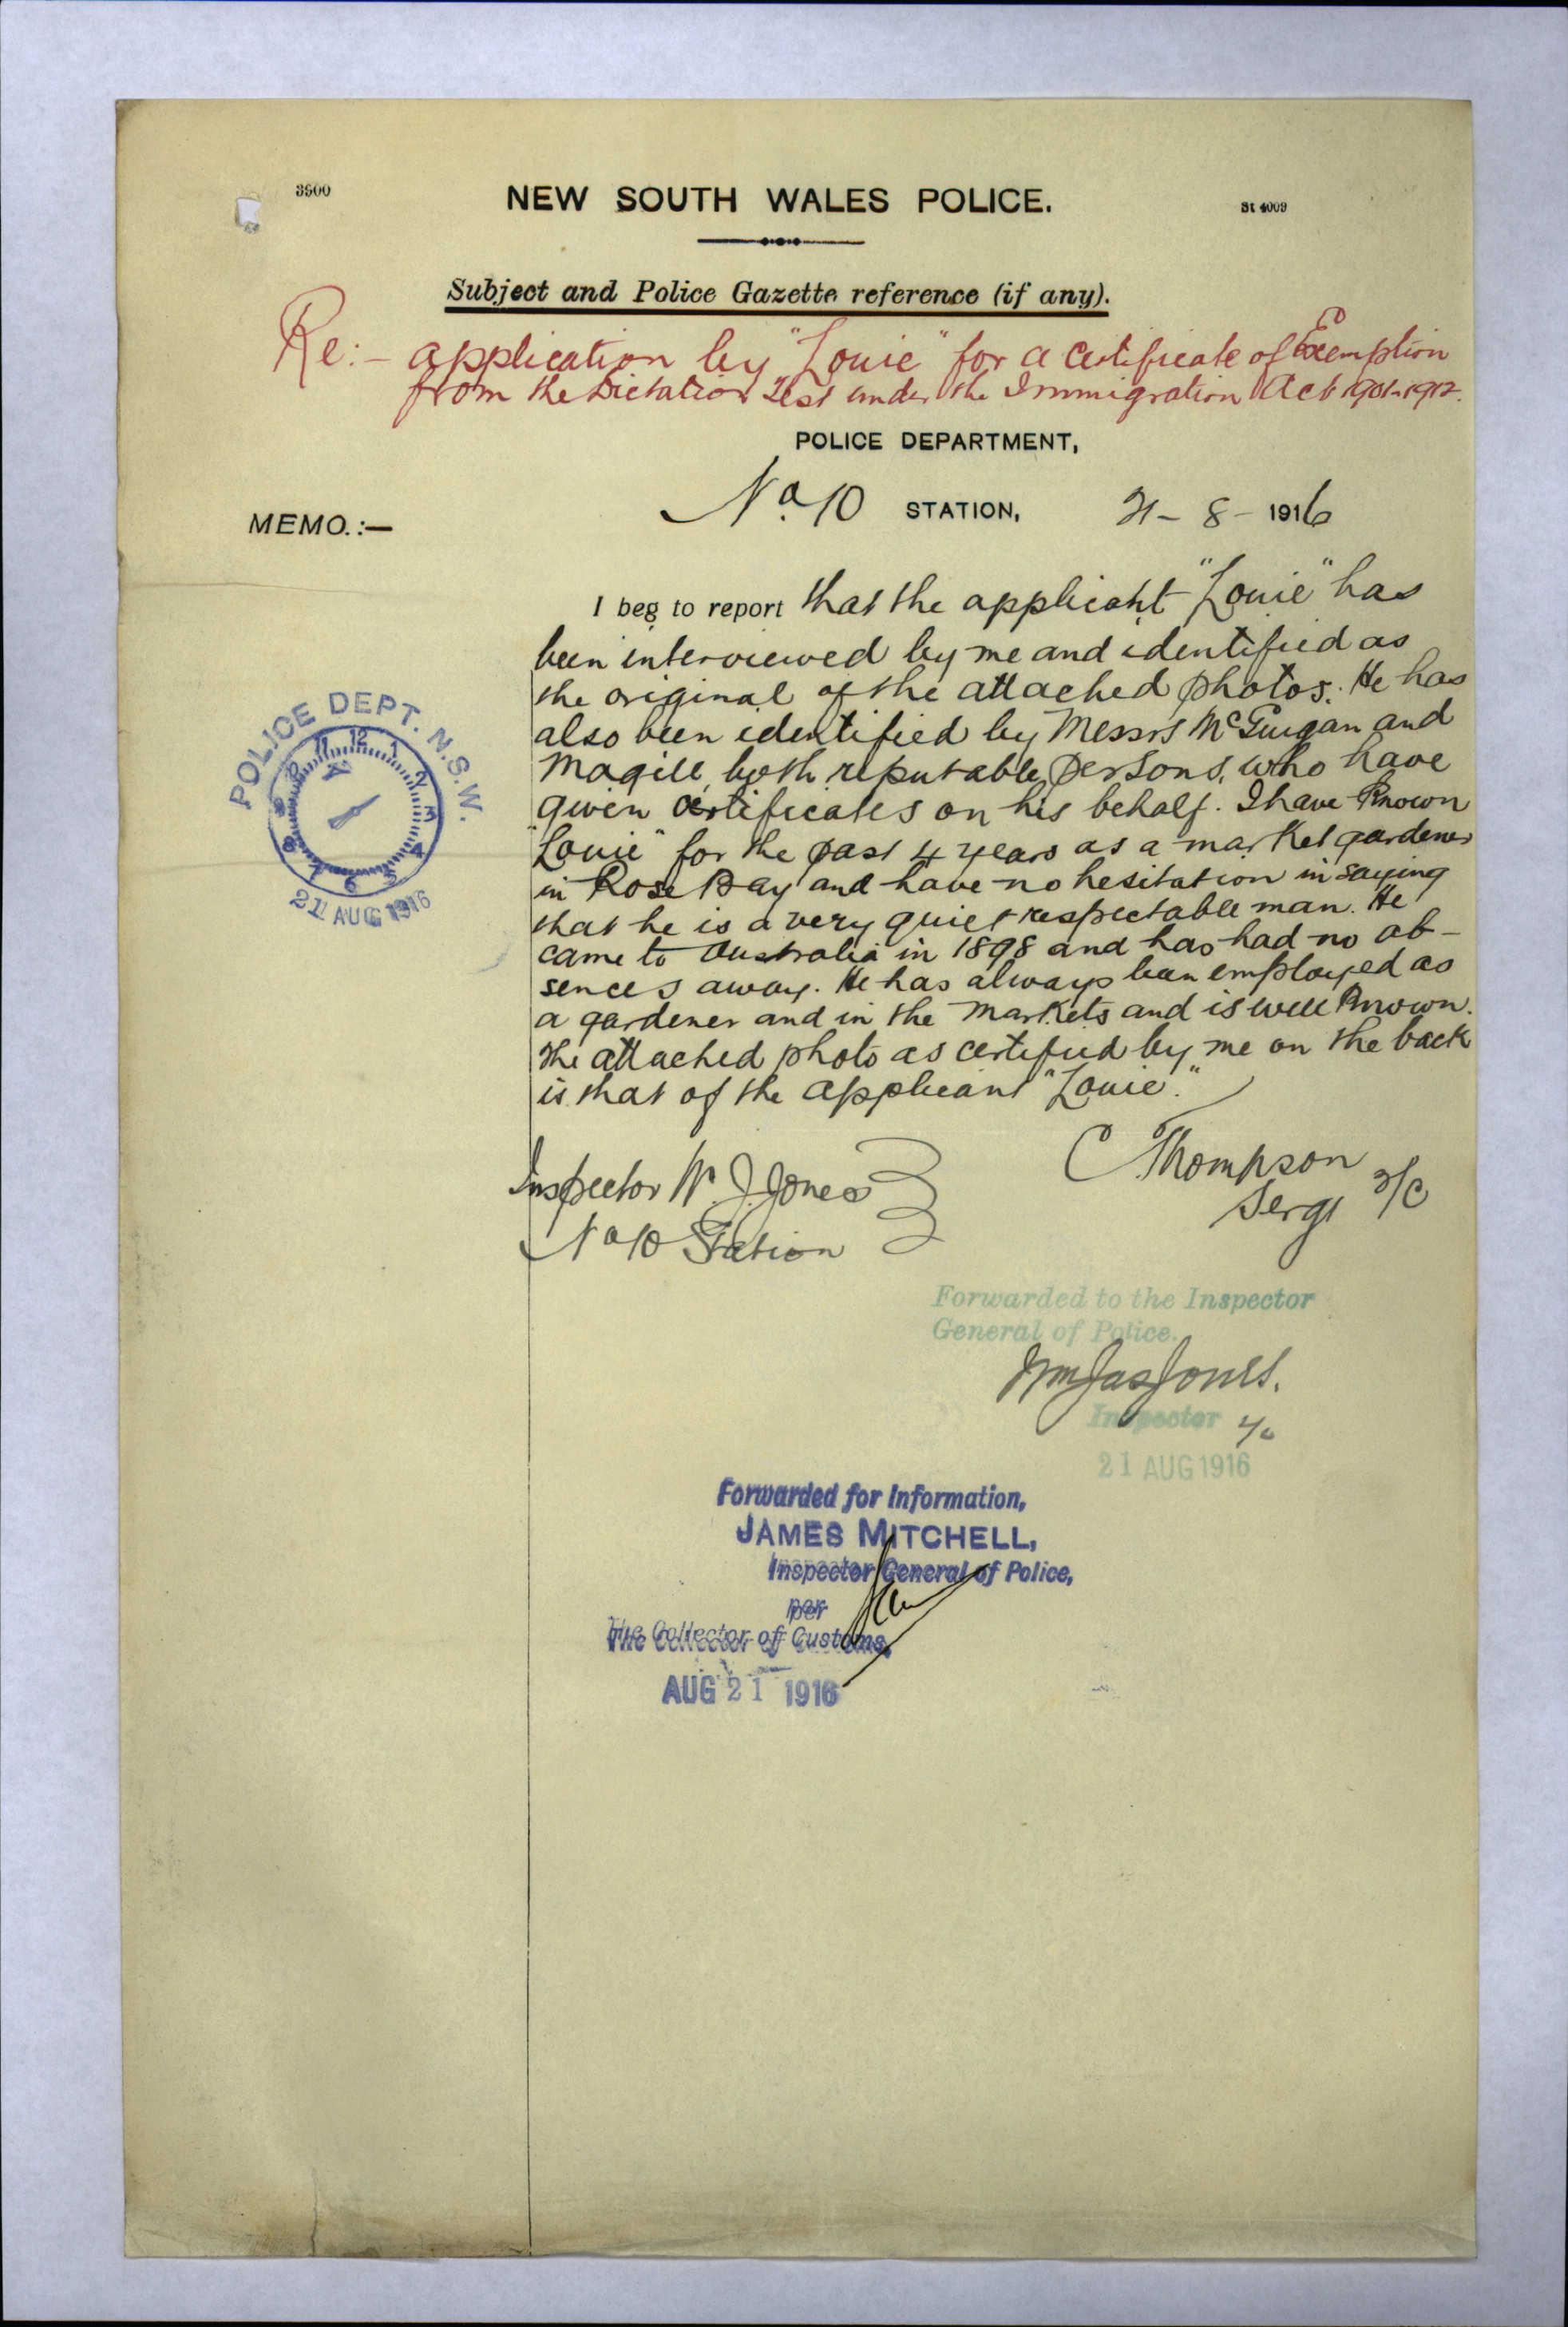 3900
NEW SOUTH WALES POLICE.
St 4009
Subject and Police Gazette reference (if any).
Re:- application by "Louie" for a Certificate of Exemption
from the Dictation Test under the Immigration Act 1901-1912.
POLICE DEPARTMENT,
No. 10 STATION, 21-8-1916
MEMO.:—
I beg to report that the applicant "Louie" has
been interviewed by me and identified as
the original of the attached photos. He has
also been identified by Messrs McGuigan and
Magill, both reputable persons, who have
given certificates on his behalf. I have known
"Louie" for the past 4 years as a market gardener
in Rose Bay and have no hesitation in saying
that he is a very quiet respectable man. He
came to Australia in 1898 and has had no ab-
sences away. He has always been employed as
a gardener and in the markets and is well known.
The attached photo as certified by me on the back
is that of the applicant "Louie."
POLICE DEPT. N.S.W.
12 1 2 3 4 5 6 7 8 9 10 11
21 AUG 1916
C Thompson
Sergt 3/C
Inspector W. J. Jones
No 10 Station
Forwarded to the Inspector
General of Police.
Wm Jas Jones.
Inspector
21 AUG 1916
Forwarded for Information,
JAMES MITCHELL,
Inspector General of Police,
per
The Collector of Customs,
AUG 21 1916